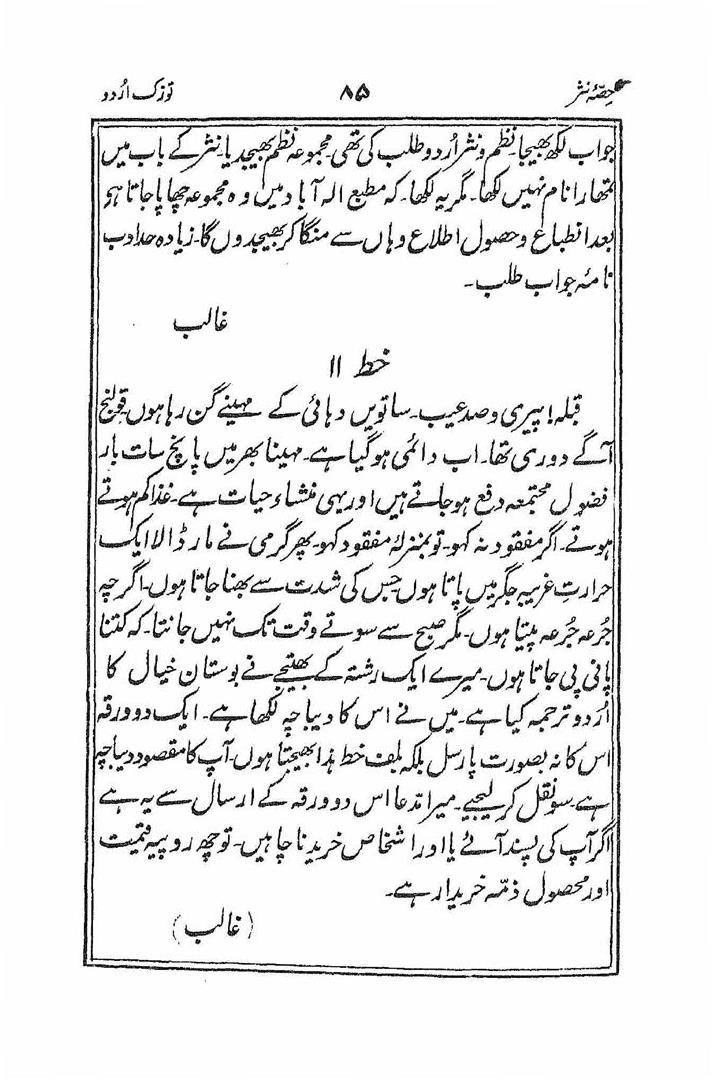 حصّۂ نثر ۸۵ توزک اُردو
جواب لکھ بھیجا۔ نظم و نثر اُردو طلب کی تھی۔ مجموعہ نظم بھیجدیا۔ نثر کے باب میں
تمھارا نام نہیں لکھا۔ مگر یہ لکھا۔ کہ مطبع الہ آباد میں وہ مجموعہ چھاپا جاتا ہو
بعد انطباع و حصول اطلاع وہاں سے منگا کر بھیجدوں گا۔ زیادہ حد ادب
نامہ جواب طلب۔
غالب
خط ۱۱
قبلہ! پیری و صد عیب۔ ساتویں دہائی کے مہینے گن رہا ہوں۔ قولنج
آگے دوری تھا۔ اب دائمی ہو گیا ہے۔ مہینا بھر میں پانچ سات بار
فضول مجتمعہ دفع ہو جاتے ہیں اور یہی منشاء حیات ہے۔ غذا کم ہوتے
ہوتے۔ اگر مفقود نہ کہو۔ تو بمنزلۂ مفقود کہو۔ پھر گرمی نے مار ڈالا ایک
حرارتِ غریبہ جگر میں پاتا ہوں۔ جس کی شدت سے بھنا جاتا ہوں۔ اگرچہ
جُرعہ جُرعہ پیتا ہوں۔ مگر صبح سے سوتے وقت تک نہیں جانتا۔ کہ کتنا
پانی پی جاتا ہوں۔ میرے ایک رشتہ کے بھتیجے نے بوستان خیال کا
اُردو ترجمہ کیا ہے۔ میں نے اس کا دیباچہ لکھا ہے۔ ایک دو ورقہ
اس کا نہ بصورت پارسل بلکہ بلف خط ہذا بھیجتا ہوں۔ آپ کا مقصود دیباچہ
ہے۔ سو نقل کر لیجیے۔ میرا مدعا اس دو ورقہ کے ارسال سے یہ ہے
اگر آپ کی پسند آئے یا اور اشخاص خریدنا چاہیں۔ تو چھ روپیہ قیمت
اور محصول ذمّہ خریدار ہے۔
(غالب)